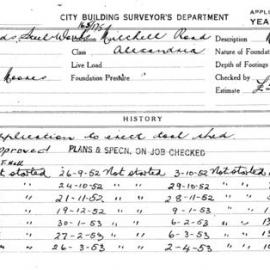 CITY BUILDING SURVEYOR'S DEPARTMENT
YEA
163/175
Mitchell Road
Description
Class Alexandria
Nature of Foundat
Live Load
Depth of Footings
Moores
Foundation Pressure
Checked by
Estimate
HISTORY
application to erect shed.
pproved
PLANS & SPECN. ON JOB CHECKED
t started 26-9-52 Not started 3-10-52 Not started
" " 24-10-52 " " 29-10-52 " "
" " 21-11-52 " " 28-11-52 " "
" " 19-12-52 " " 9-1-53 " "
" " 30-1-53 " " 6-2-53 " "
" " 27-2-53 " " 6-3-53 " "
" " 26-3-53 " " 2-4-53 " "